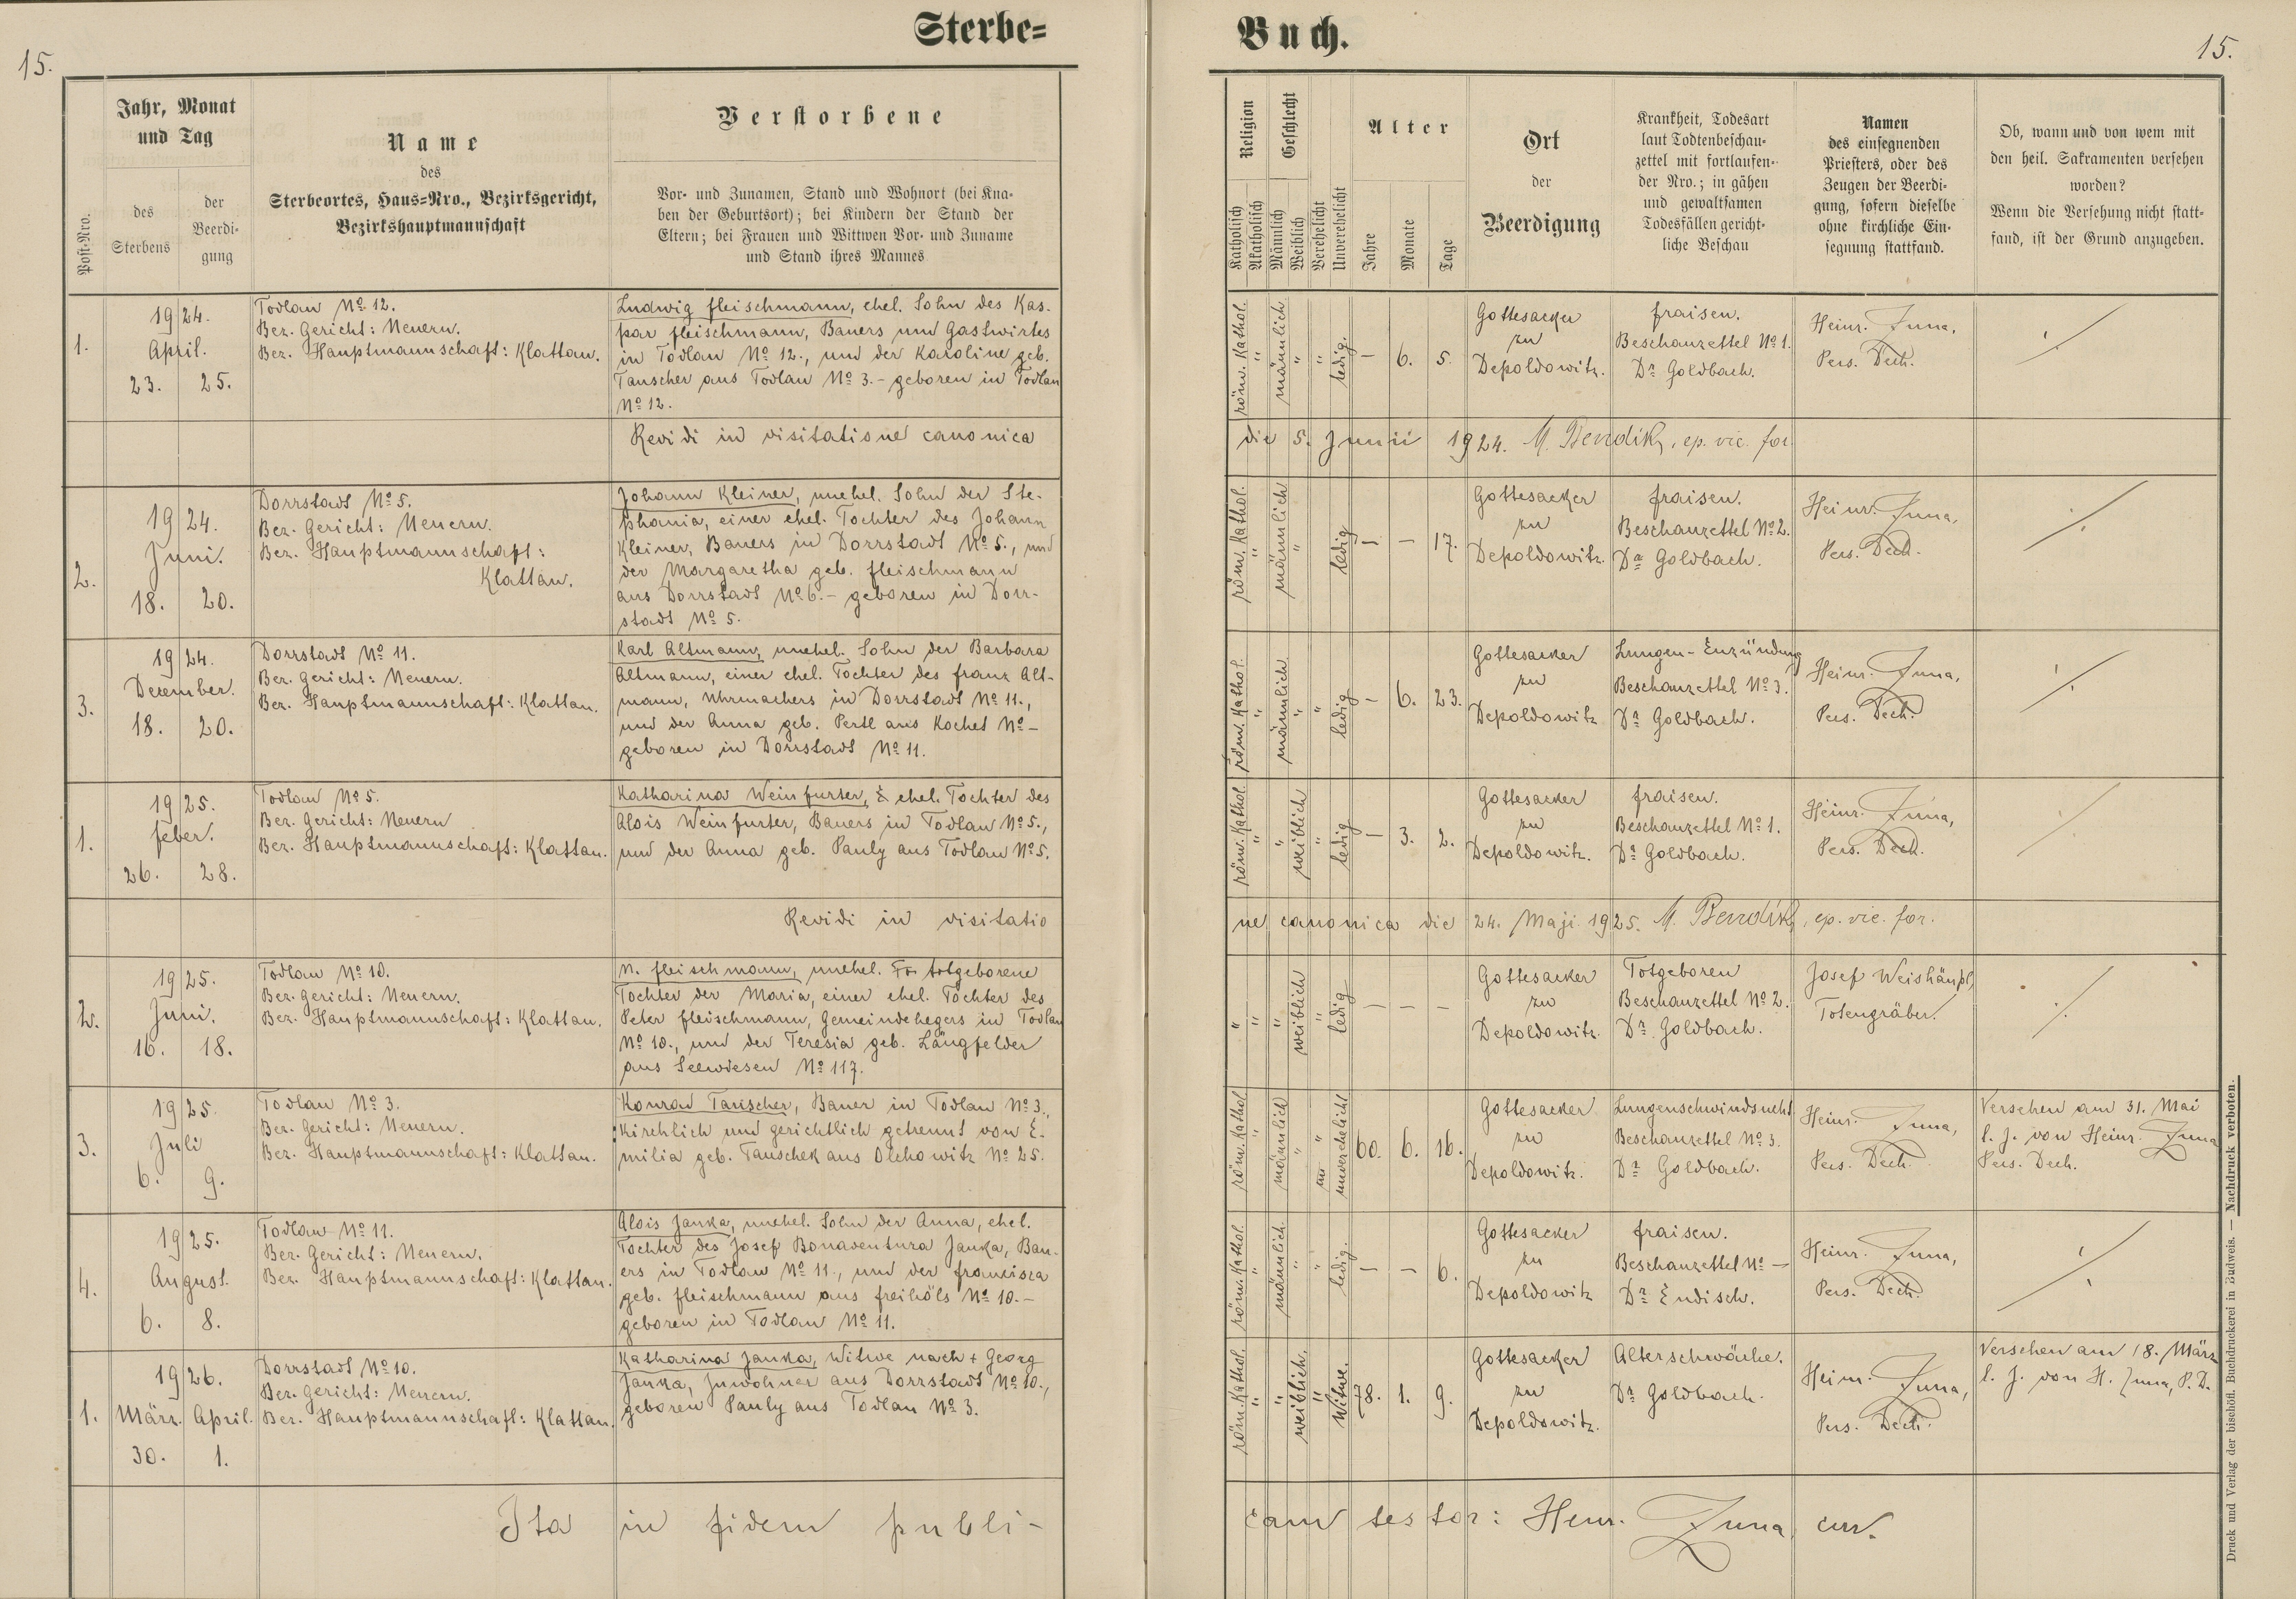 Sterbe=
Buch.
15.
15.
Jahr, Monat
und Tag
Post-Nro.
des
Sterbens
der
Beerdi-
gung
Name
des
Sterbeortes, Haus=Nro., Bezirksgericht,
Bezirkshauptmannschaft
Verstorbene
Vor- und Zunamen, Stand und Wohnort (bei Kna-
ben der Geburtsort); bei Kindern der Stand der
Eltern; bei Frauen und Wittwen Vor- und Zuname
und Stand ihres Mannes
Religion
Katholisch
Akatholisch
Geschlecht
Männlich
Weiblich
Verehelicht
Unverehelicht
Alter
Jahre
Monate
Tage
Ort
der
Beerdigung
Krankheit, Todesart
laut Todtenbeschau-
zettel mit fortlaufen-
der Nro.; in gähen
und gewaltsamen
Todesfällen gericht-
liche Beschau
Namen
des einsegnenden
Priesters, oder des
Zeugen der Beerdi-
gung, sofern dieselbe
ohne kirchliche Ein-
segnung stattfand.
Ob, wann und von wem mit
den heil. Sakramenten versehen
worden?
Wenn die Versehung nicht statt-
fand, ist der Grund anzugeben.
1.
19 24.
April.
23. 25.
Todlau No 12.
Bez. Gericht: Neuern.
Bez. Hauptmannschaft: Klattau.
Ludwig Fleischmann, ehel. Sohn des Kas-
par Fleischmann, Bauers und Gastwirtes
in Todlau No 12., und der Karoline geb.
Tauscher aus Todlau No 3.- geboren in Todlau
No 12.
röm. Kathol.
"
männlich
"
"
ledig.
— 6. 5.
Gottesacker
zu
Depoldowitz.
Fraisen.
Beschauzettel No 1.
Dr Goldbach.
Heinr. Juna,
Pers. Dech.
Revidi in visitatione canonica
die 5. Junii 1924. M. Bendík, ep. vic. for.
2.
19 24.
Juni.
18. 20.
Dorrstadt No 5.
Bez. Gericht: Neuern.
Bez. Hauptmannschaft:
Klattau.
Johann Kleiner, unehel. Sohn der Ste-
phania, einer ehel. Tochter des Johann
Kleiner, Bauers in Dorrstadt No 5., und
der Margaretha geb. Fleischmann
aus Dorrstadt No 6.- geboren in Dorr-
stadt No 5.
röm. Kathol.
"
männlich
"
ledig
— — 17.
Gottesacker
zu
Depoldowitz.
Fraisen.
Beschauzettel No 2.
Dr Goldbach.
Heinr. Juna,
Pers. Dech.
3.
19 24.
Dezember.
18. 20.
Dorrstadt No 11.
Bez. Gericht: Neuern.
Bez. Hauptmannschaft: Klattau.
Karl Altmann, unehel. Sohn der Barbara
Altmann, einer ehel. Tochter des Franz Alt-
mann, Uhrmachers in Dorrstadt No 11.,
und der Anna geb. Pertl aus Kochet No -
geboren in Dorrstadt No 11.
röm. Kathol.
"
männlich
"
"
ledig
— 6. 23.
Gottesacker
zu
Depoldowitz
Lungen-Enzündung
Beschauzettel No 3.
Dr Goldbach.
Heinr. Juna,
Pers. Dech.
1.
19 25.
Feber.
26. 28.
Todlau No 5.
Bez. Gericht: Neuern
Bez. Hauptmannschaft: Klattau.
Katharina Weinfurter, ehel. Tochter des
Alois Weinfurter, Bauers in Todlau No 5.,
und der Anna geb. Pauly aus Todlau No 5.
röm. Kathol.
"
"
weiblich
"
ledig
— 3. 2.
Gottesacker
zu
Depoldowitz.
Fraisen.
Beschauzettel No 1.
Dr Goldbach.
Heinr. Juna,
Pers. Dech.
Revidi in visitatio
ne canonica die 24. Maji 1925. M. Bendík, ep. vic. for.
2.
19 25.
Juni.
16. 18.
Todlau No 10.
Bez. Gericht: Neuern.
Bez. Hauptmannschaft: Klattau.
N. Fleischmann, unehel. To totgeborene
Tochter der Maria, einer ehel. Tochter des
Peter Fleischmann, Gemeindehegers in Todlau
No 10., und der Teresia geb. Längfelder
aus Seewiesen No 117.
"
"
"
weiblich
"
ledig
— — —
Gottesacker
zu
Depoldowitz.
Totgeboren
Beschauzettel No 2.
Dr Goldbach.
Josef Weishäupl,
Totengräber.
3.
19 25.
Juli
6. 9.
Todlau No 3.
Bez. Gericht: Neuern.
Bez. Hauptmannschaft: Klattau.
Konrad Tauscher, Bauer in Todlau No 3.,
kirchlich und gerichtlich getrennt von E-
milia geb. Tauschek aus Olchowitz No 25.
röm. Kathol.
"
männlich
"
"
unverehelicht
60. 6. 16.
Gottesacker
zu
Depoldowitz.
Lungenschwindsucht
Beschauzettel No 3.
Dr Goldbach.
Heinr. Juna,
Pers. Dech.
Versehen am 31. Mai
l. J. von Heinr. Juna
Pers. Dech.
4.
19 25.
August.
6. 8.
Todlau No 11.
Bez. Gericht: Neuern.
Bez. Hauptmannschaft: Klattau.
Alois Janka, unehel. Sohn der Anna, ehel.
Tochter des Josef Bonaventura Janka, Bau-
ers in Todlau No 11., und der Francisca
geb. Fleischmann aus Freihöls No 10.-
geboren in Todlau No 11.
röm. Kathol.
"
männlich.
"
"
ledig.
— — 6.
Gottesacker
zu
Depoldowitz
Fraisen.
Beschauzettel No —
Dr Endisch.
Heinr. Juna,
Pers. Dech.
1.
19 26.
März. April.
30. 1.
Dorrstadt No 10.
Bez. Gericht: Neuern.
Bez. Hauptmannschaft: Klattau.
Katharina Janka, Witwe nach + Georg
Janka, Inwohner aus Dorrstadt No 10.,
geboren Pauly aus Todlau No 3.
röm. Kathol.
"
"
weiblich.
"
Witwe.
78. 1. 9.
Gottesacker
zu
Depoldowitz.
Alterschwäche.
Dr Goldbach.
Heinr. Juna,
Pers. Dech.
Versehen am 18. März
l. J. von H. Juna, P. D.
Ita in fidem publi-
cam testor: Henr. Juna, cur.
Druck und Verlag der bischöfl. Buchdruckerei in Budweis. — Nachdruck verboten.